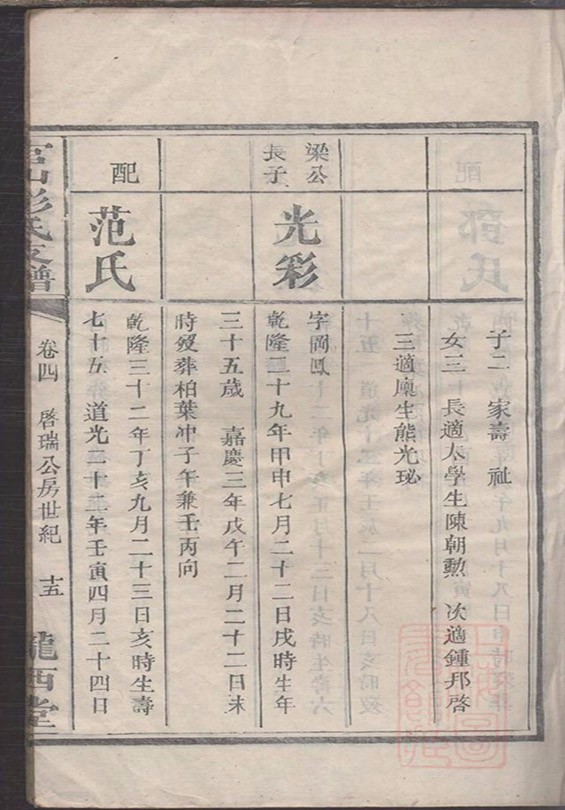 子二 家壽 祉
女三 長適太學生陳朝勲 次適鍾邦啓
三適廩生熊光珌
梁公
長子
光彩
字岡鳳
乾隆二十九年甲申七月二十二日戌時生年
三十五歲 嘉慶三年戊午二月二十二日未
時歿葬柏葉冲子午兼壬丙向
配
范氏
乾隆三十二年丁亥九月二十三日亥時生壽
七十五 道光二十二年壬寅四月二十四日
山彭氏支譜
卷四
啓瑞公房世紀
十五
隴西堂